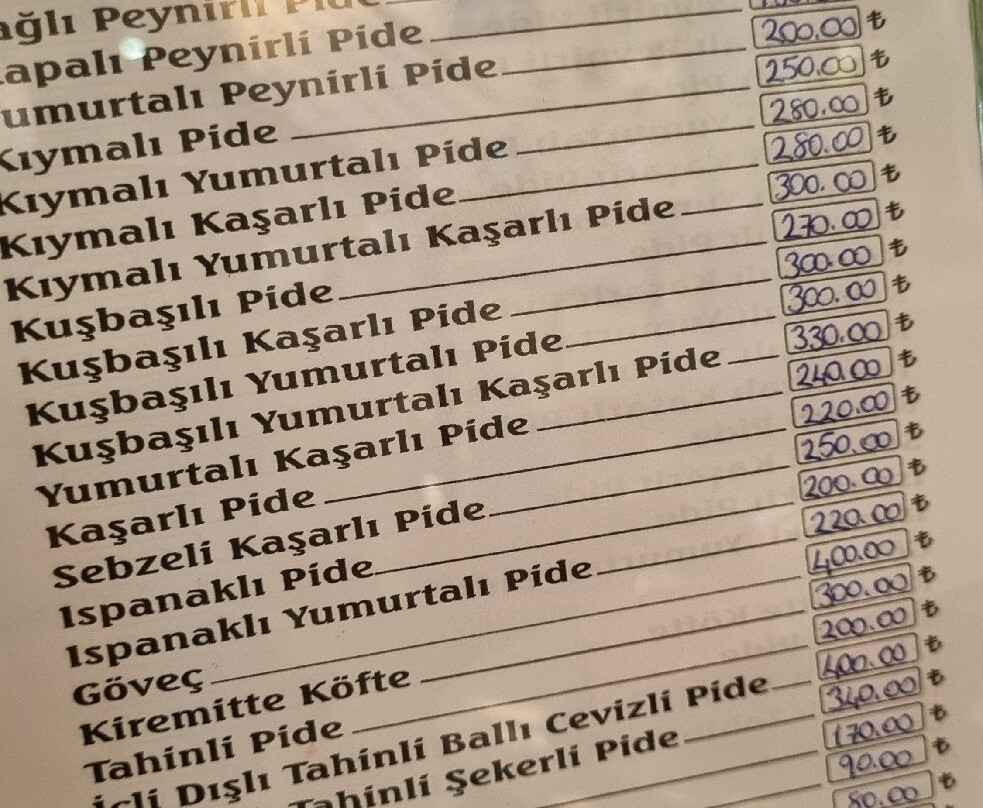 ağlı Peynirli Pide
apalı Peynirli Pide
umurtalı Peynirli Pide 200.00 ₺
Kıymalı Pide 250.00 ₺
Kıymalı Yumurtalı Pide 280.00 ₺
Kıymalı Kaşarlı Pide 280.00 ₺
Kıymalı Yumurtalı Kaşarlı Pide 300.00 ₺
Kuşbaşılı Pide 270.00 ₺
Kuşbaşılı Kaşarlı Pide 300.00 ₺
Kuşbaşılı Yumurtalı Pide 300.00 ₺
Kuşbaşılı Yumurtalı Kaşarlı Pide 330.00 ₺
Yumurtalı Kaşarlı Pide 240.00 ₺
Kaşarlı Pide 220.00 ₺
Sebzeli Kaşarlı Pide 250.00 ₺
Ispanaklı Pide 200.00 ₺
Ispanaklı Yumurtalı Pide 220.00 ₺
Göveç 400.00 ₺
Kiremitte Köfte 300.00 ₺
Tahinli Pide 200.00 ₺
İçli Dışlı Tahinli Ballı Cevizli Pide 400.00 ₺
Tahinli Şekerli Pide 340.00 ₺
170.00 ₺
90.00 ₺
80.00 ₺